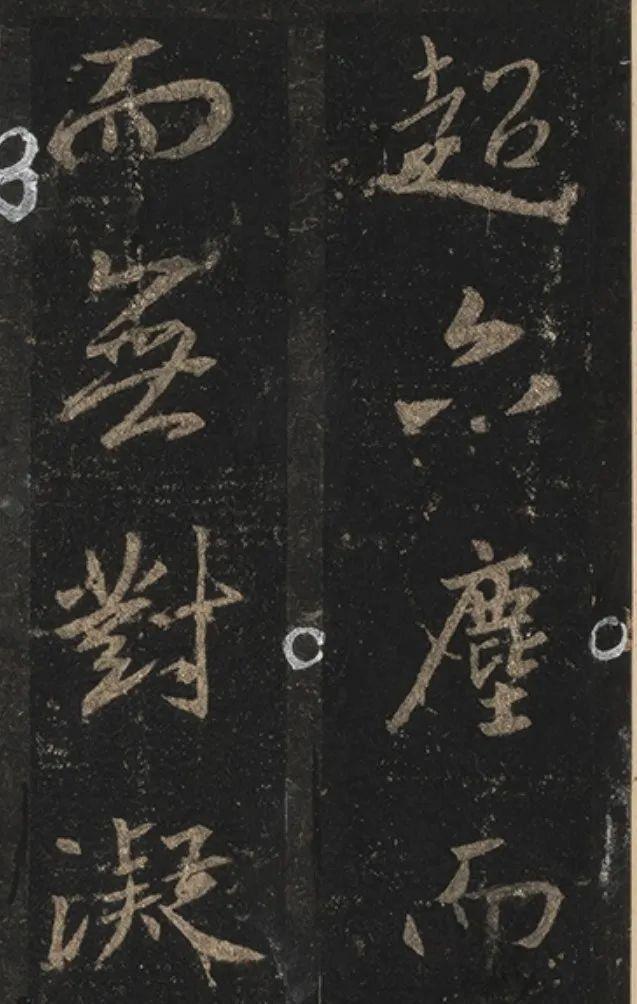 超六塵而
而無對凝